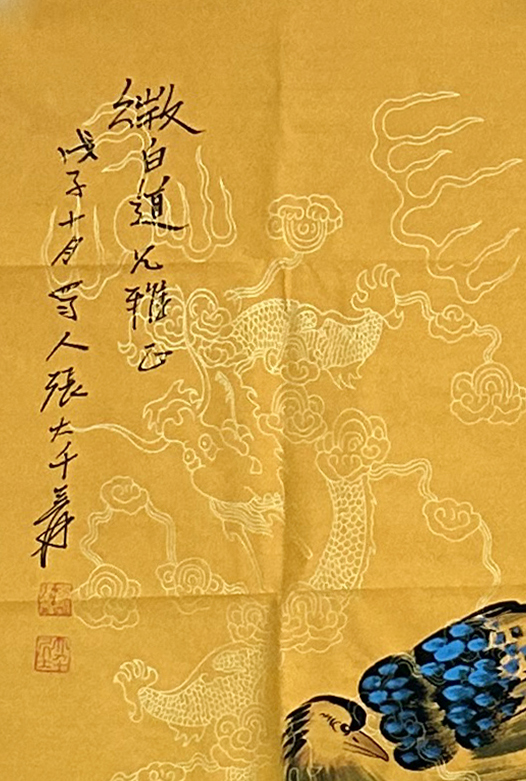 微白道兄雅正
戊子十月蜀人張大千爰